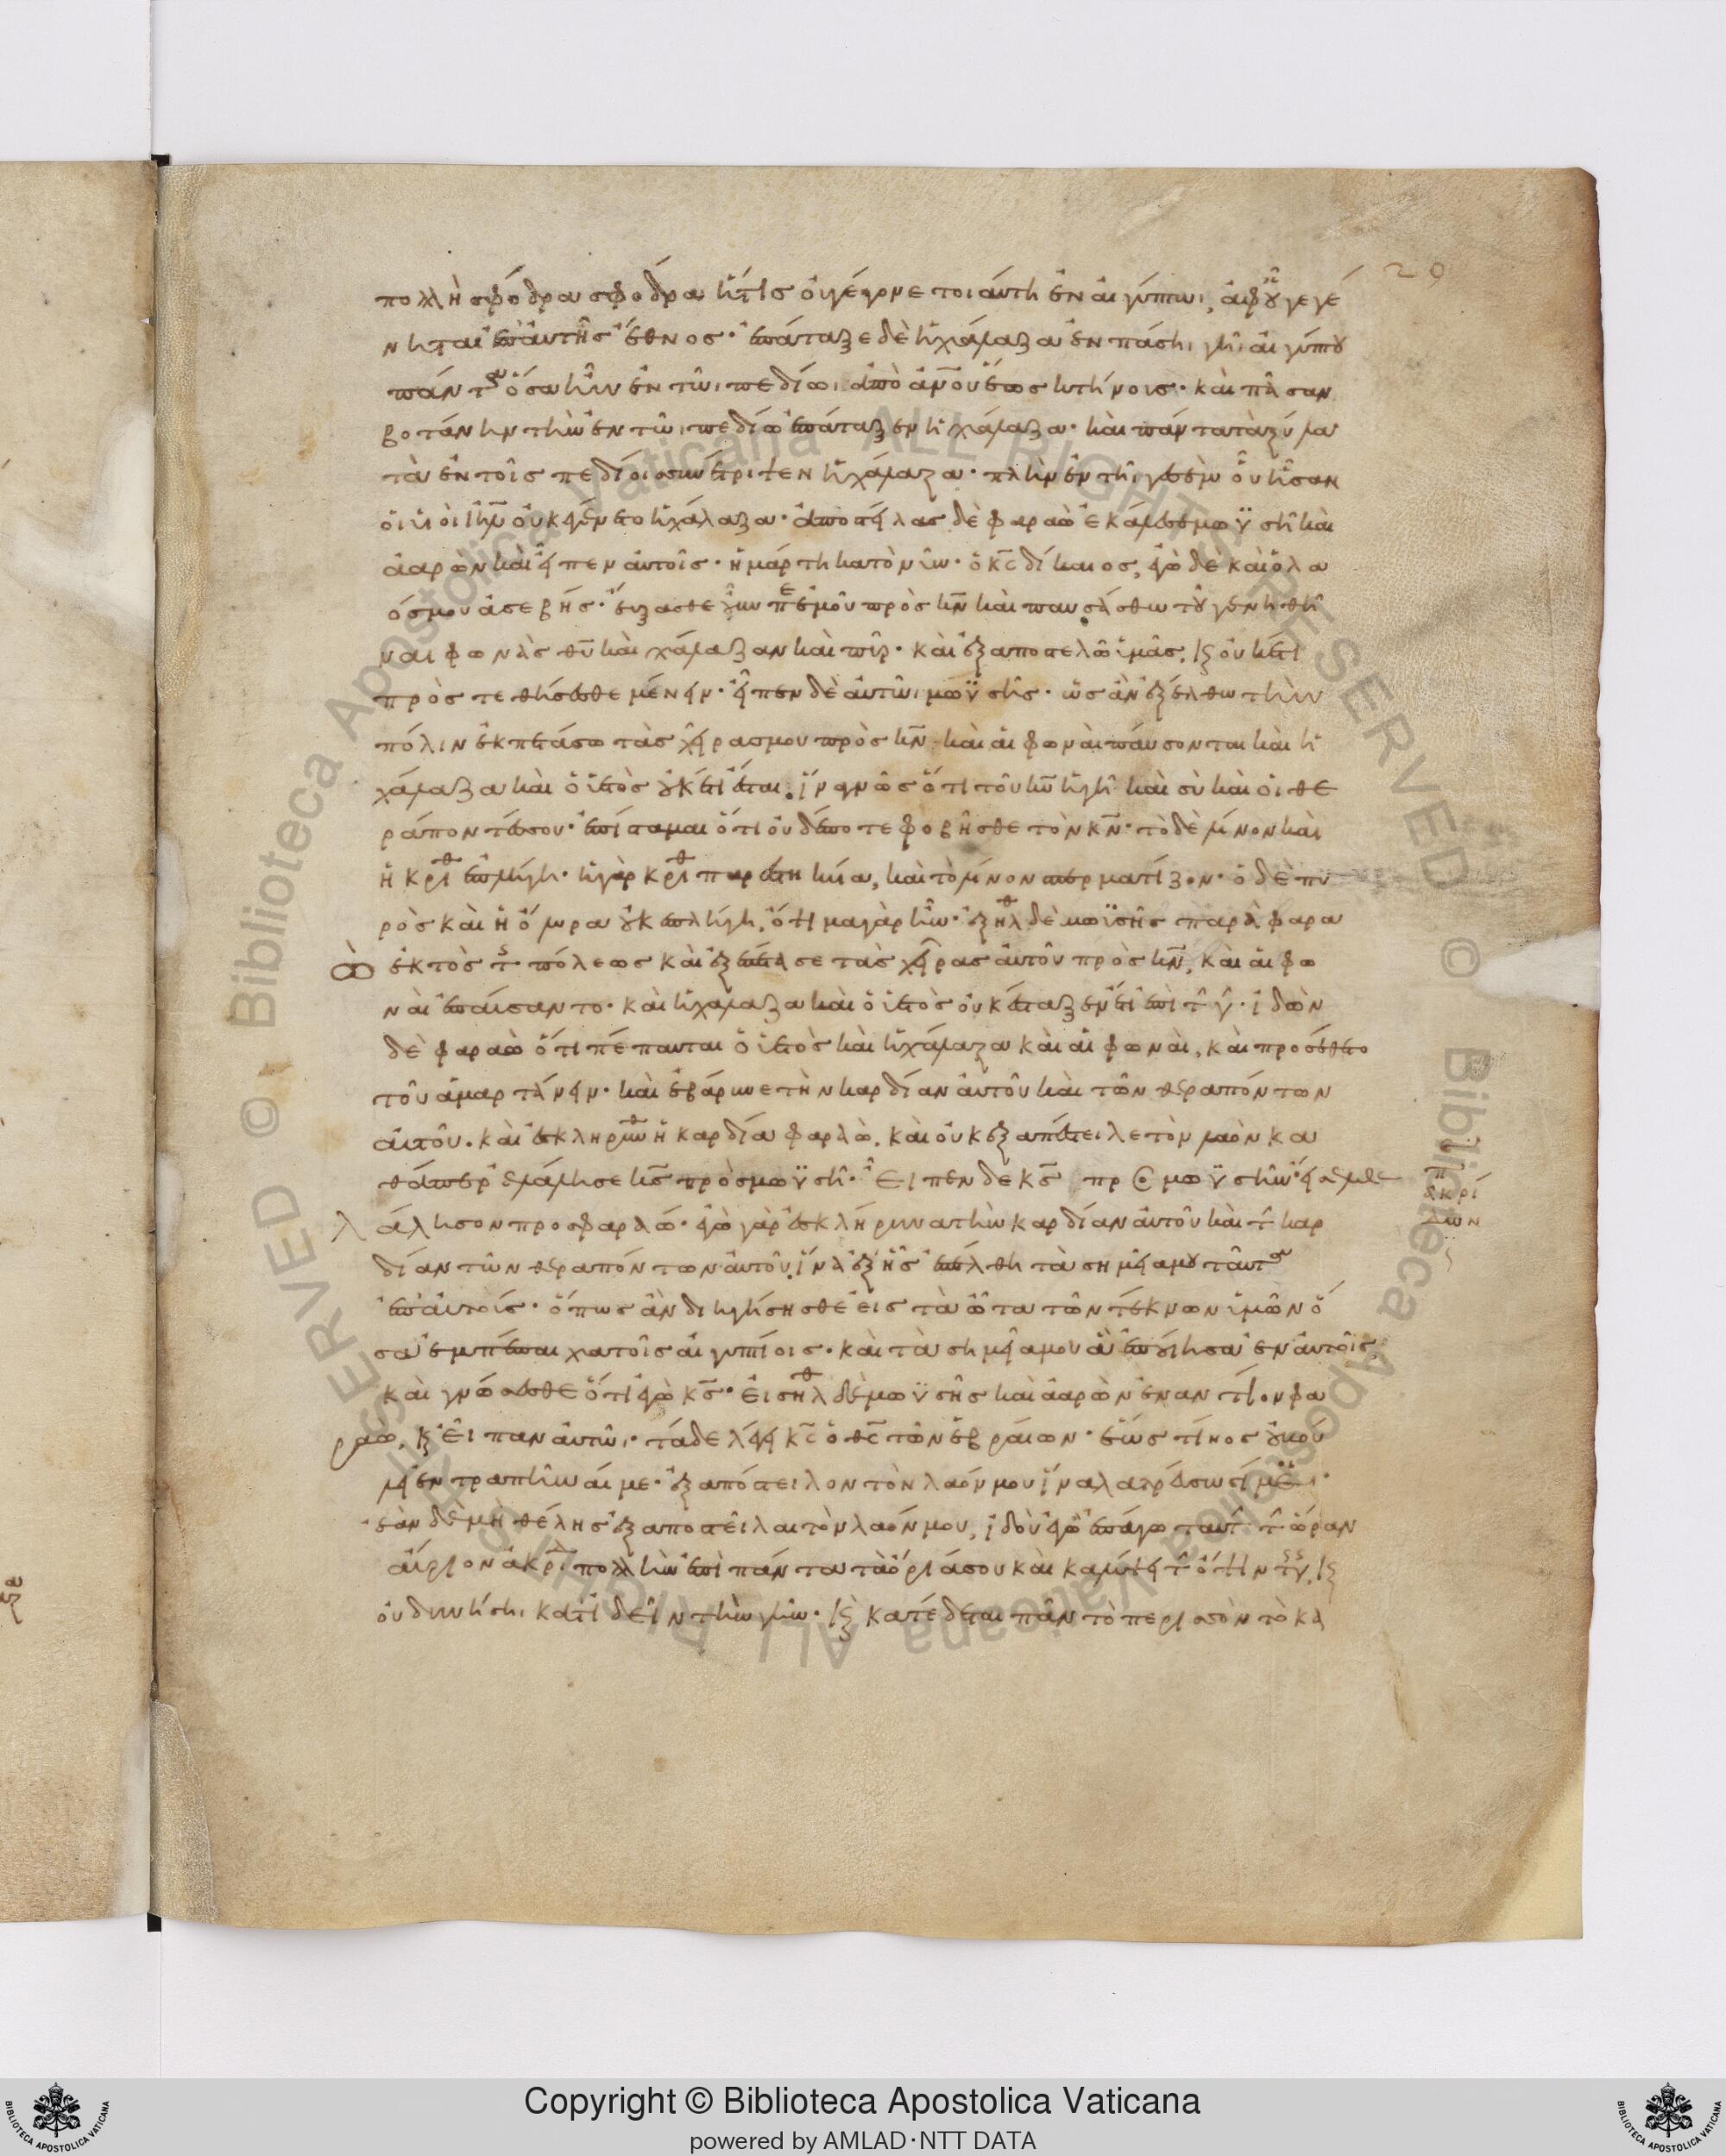 29
πολλὴ σφόδρα σφοδρα ἥτις οὐ γέγονε τοιαύτη ἐν αἰγύπτωι, ἀφ οὗ γεγέ
νηται ἐπ αὐτῆς ἔθνος· ἐπάταξε δὲ ἡ χάλαζα ἐν πάσηι γῆι αἰγύπτου
πάντα ὅσα ἦν ἐν τῶι πεδίωι ἀπὸ ἀνου ἕως κτήνους· καὶ πᾶσαν
βοτάνην τὴν ἐν τῶι πεδίω ἐπάταξεν ἡ χάλαζα· καὶ πάντα τὰ ξύλα
τὰ ἐν τοῖς πεδίοις συνέτριψεν ἡ χάλαζα· πλὴν ἐν τῆι γεσὲμ οὗ ἦσαν
οἱ υἱοὶ ιηλ οὐκ ἐγένετο ἡ χάλαζα· ἀποστείλας δὲ φαραὼ ἐκάλεσε μωϋσῆ καὶ
ἀαρὼν καὶ εἶπεν αὐτοῖς· ἡμάρτηκα τὸ νῦν· ὁ κς δίκαιος, ἐγὼ δὲ καὶ ὁ λα
ός μου ἀσεβής· εὔξασθε οὖν πε ἐμοῦ πρὸς κν καὶ παυσάσθω τοῦ γενηθῆ
ναι φωνὰς θυ καὶ χάλαζαν καὶ πῦρ· καὶ ἐξαποστελῶ ὑμᾶς, καὶ οὐκέτι
προστεθήσεσθε μένειν· εἶπεν δὲ αὐτῶι μωϋσῆς· ὡς ἂν ἐξέλθω τὴν
πόλιν ἐκπετάσω τὰς χεῖρας μου πρὸς κν καὶ αἱ φωναὶ παύσονται καὶ ἡ
χάλαζα καὶ ὁ ὑετὸς οὐκ ἔτι ἔσται. ἵνα γνῶς ὅτι τοῦ κυ ἡ γῆ καὶ σὺ καὶ οἱ θε
ράποντές σου· ἐπίσταμαι ὅτι οὐδέποτε φοβῆσθε τὸν κν· τὸ δὲ λίνον καὶ
ἡ κριθ ἐπλήγη· ἡ γὰρ κριθ παρεστηκυία, καὶ τὸ λίνον σπερματίζον· ὁ δὲ πυ
ρὸς καὶ ἡ ὄλυρα οὐκ ἐπλήγη, ὄψιμα γὰρ ἦν· ἐξῆλθ δὲ μωϋσῆς παρὰ φαρα
ὼ ἐκτὸς τς πόλεως καὶ ἐξεπέτασε τὰς χεῖρας αὐτοῦ πρὸς κν, καὶ αἱ φω
ναὶ ἐπαύσαντο· καὶ ἡ χάλαζα καὶ ὁ ὑετὸς οὐκ ἔσταξεν ἔτι ἐπὶ τ γ· ἰδὼν
δὲ φαραὼ ὅτι πέπαυται ὁ ὑετὸς καὶ ἡ χάλαζα καὶ αἱ φωναὶ, καὶ προσέθετο
τοῦ ἁμαρτάνειν· καὶ ἐβάρυνε τὴν καρδίαν αὐτοῦ καὶ τῶν θεραπόντων
αὐτοῦ. καὶ ἐσκληρύνθ ἡ καρδία φαραὼ, καὶ οὐκ ἐξαπέστειλε τὸν λαὸν κα
θάπερ ἐλάλησε κς πρὸς μωϋσῆ· Εἶπεν δε κς πρς μωϋσῆν
π ἀκρίδων
λάλησον προς φαραώ· ἐγὼ γὰρ ἐσκλήρυνα τὴν καρδίαν αὐτοῦ καὶ τ καρ
δίαν τῶν θεραπόντων αὐτοῦ, ἵνα ἑξῆς ἐπέλθη τὰ σημεῖα μου ταῦτα
ἐπ αὐτούς· ὅπως ἂν διηγήσησθε εἰς τὰ ὦτα τῶν τέκνων ὑμῶν ὅ
σα ἐμπέπαιχα τοῖς αἰγυπτίοις· καὶ τὰ σημεῖα μου ἃ ἐποίησα ἐν αὐτοῖς,
καὶ γνώσεσθε ὅτι ἐγὼ κς· εἰσῆλθ δὲ μωϋσῆς καὶ ἀαρὼν ἐναντίον φα
ραὼ, καὶ εἶπαν αὐτῶι· τάδε λέγει κς ὁ θς τῶν ἑβραίων· ἕως τίνος οὐ βού
λει ἐντραπῆναί με· ἐξαπόστειλον τὸν λαόν μου ἵνα λατρεύσωσί μοι·
ἐὰν δὲ μὴ θέλης ἐξαποστεῖλαι τὸν λαόν μου, ἰδοὺ ἐγὼ ἐπάγω ταύτ τ ὥραν
αὔριον ἀκρί πολλὴν ἐπὶ πάντα τὰ ὅριά σου καὶ καλύψει τ ὄψιν τς γ, καὶ
οὐ δυνήσηι κατιδεῖν τὴν γῆν· καὶ κατέδεται πᾶν τὸ περισσὸν τὸ κα
Copyright © Biblioteca Apostolica Vaticana
powered by AMLAD·NTT DATA